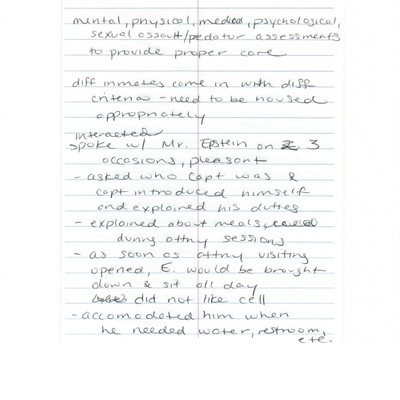 mental, physical, medical, psychological,
sexual assault/pedator assessments
to provide proper care
diff inmates come in with diff
criteria - need to be housed
appropriately
interacted
spoke w/ Mr. Epstein on 3
occasions, pleasant
- asked who Capt was &
capt introduced himself
and explained his duties
- explained about meals,
during attny sessions
- as soon as attny visiting
opened, E. would be brought
down & sit all day
did not like cell
- accomodated him when
he needed water, restroom,
etc.